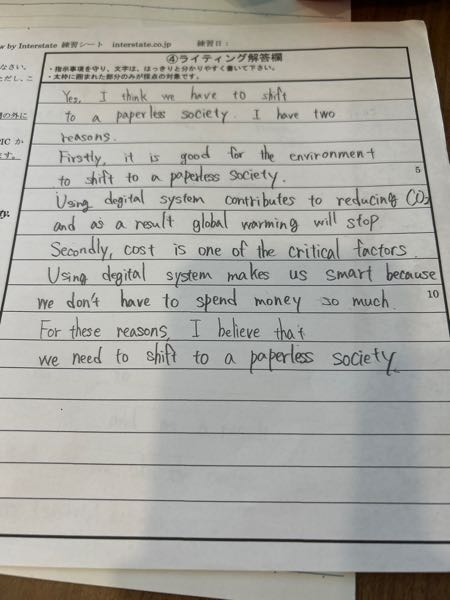 w by Interstate 練習シート interstate.co.jp 練習日：
④ライティング解答欄
・指示事項を守り、文字は、はっきりと分かりやすく書いて下さい。
・太枠に囲まれた部分のみが採点の対象です。
なさい。
ただし、こ
の外に
PIC か
ます。
Yes, I think we have to shift
to a paperless society. I have two
reasons.
Firstly, it is good for the environment
to shift to a paperless society.
5
Using degital system contributes to reducing CO2
and as a result global warming will stop
Secondly, cost is one of the critical factors.
Using degital system makes us smart because
we don't have to spend money so much.
10
For these reasons, I believe that
we need to shift to a paperless society.